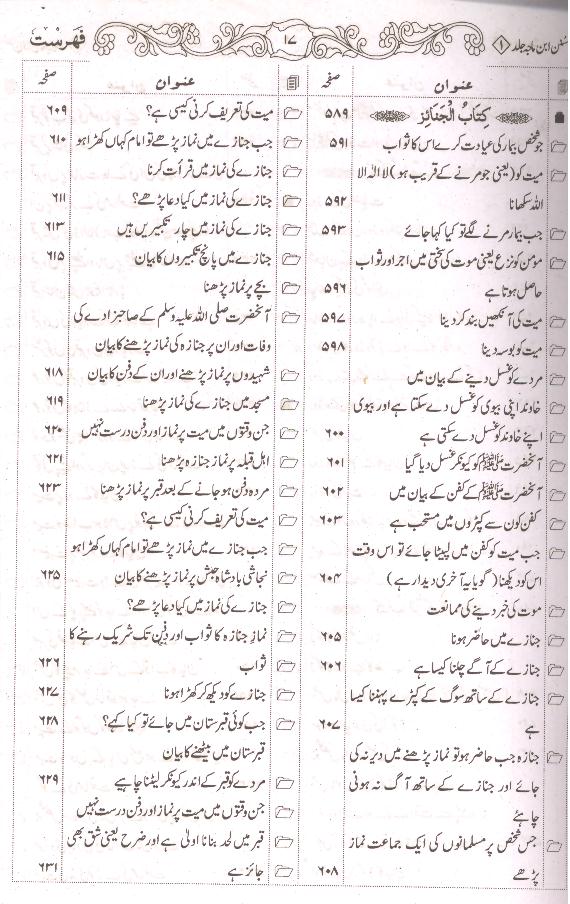 سنن ابن ماجہ جلد ۱
۱۷
فہرست
عنوان صفحہ
کِتَابُ الْجَنَائِزِ ۵۸۹
جو شخص بیمار کی عیادت کرے اس کا ثواب ۵۹۱
میت کو (یعنی جو مرنے کے قریب ہو) لا الٰہ الا
اللہ سکھانا ۵۹۲
جب بیمار مرنے لگے تو کیا کہا جائے ۵۹۳
مؤمن کو نزع یعنی موت کی سختی میں اجر اور ثواب
حاصل ہوتا ہے ۵۹۶
میت کی آنکھیں بند کر دینا ۵۹۷
میت کو بوسہ دینا ۵۹۸
مردے کو غسل دینے کے بیان میں
خاوند اپنی بیوی کو غسل دے سکتا ہے اور بیوی
اپنے خاوند کو غسل دے سکتی ہے ۶۰۰
آنحضرت ﷺ کو کیونکر غسل دیا گیا ۶۰۱
آنحضرت ﷺ کے کفن کے بیان میں ۶۰۲
کفن کون سے کپڑوں میں مستحب ہے ۶۰۳
جب میت کو کفن میں لپیٹا جائے تو اس وقت
اس کو دیکھنا (گویا یہ آخری دیدار ہے) ۶۰۴
موت کی خبر دینے کی ممانعت
جنازے میں حاضر ہونا ۶۰۵
جنازے کے آگے چلنا کیسا ہے ۶۰۶
جنازے کے ساتھ سوگ کے کپڑے پہننا کیسا
ہے ۶۰۷
جنازہ جب حاضر ہو تو نماز پڑھنے میں دیر نہ کی
جائے اور جنازے کے ساتھ آگ نہ ہونی
چاہئے
جس شخص پر مسلمانوں کی ایک جماعت نماز
پڑھے ۶۰۸
عنوان صفحہ
میت کی تعریف کرنی کیسی ہے؟ ۶۰۹
جب جنازے میں نماز پڑھے تو امام کہاں کھڑا ہو ۶۱۰
جنازے کی نماز میں قرأت کرنا
جنازے کی نماز میں کیا دعا پڑھے؟ ۶۱۱
جنازے کی نماز میں چار تکبیریں ہیں ۶۱۳
جنازے میں پانچ تکبیروں کا بیان ۶۱۵
بچے پر نماز پڑھنا
آنحضرت صلی اللہ علیہ وسلم کے صاحبزادے کی
وفات اور ان پر جنازہ کی نماز پڑھنے کا بیان
شہیدوں پر نماز پڑھنے اور ان کے دفن کا بیان ۶۱۸
مسجد میں جنازے کی نماز پڑھنا ۶۱۹
جن وقتوں میں میت پر نماز اور دفن درست نہیں ۶۲۰
اہل قبلہ پر نماز جنازہ پڑھنا ۶۲۱
مردہ دفن ہو جانے کے بعد قبر پر نماز پڑھنا ۶۲۳
میت کی تعریف کرنی کیسی ہے؟
جب جنازے میں نماز پڑھے تو امام کہاں کھڑا ہو
نجاشی بادشاہ حبش پر نماز پڑھنے کا بیان ۶۲۵
جنازے کی نماز میں کیا دعا پڑھے؟
نمازِ جنازہ کا ثواب اور دفن تک شریک رہنے کا
ثواب ۶۲۶
جنازے کو دیکھ کر کھڑا ہونا ۶۲۷
جب کوئی قبرستان میں جائے تو کیا کہے؟ ۶۲۸
قبرستان میں بیٹھنے کا بیان
مردے کو قبر کے اندر کیونکر لیٹنا چاہیے ۶۲۹
جن وقتوں میں میت پر نماز اور دفن درست نہیں
قبر میں لحد بنانا اولیٰ ہے اور ضرح یعنی شق بھی
جائز ہے ۶۳۱